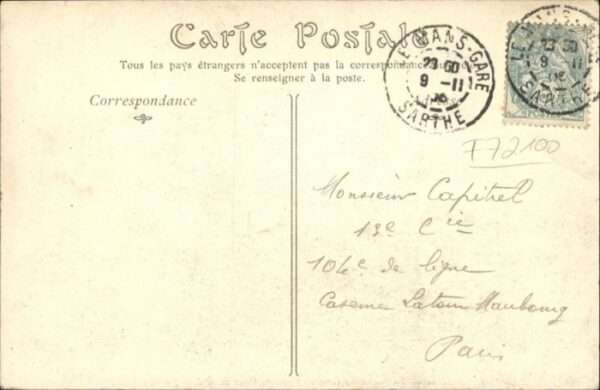 Carte Postale
Tous les pays étrangers n'acceptent pas la correspondance
Se renseigner à la poste.
Correspondance
LE MANS-GARE
23 50
9 -11
SARTHE
LE MANS
23 50
9 11
SARTHE
F72100
Monsieur Capitrel
13e Cie
104e de ligne
Caserne Latour Maubourg
Paris